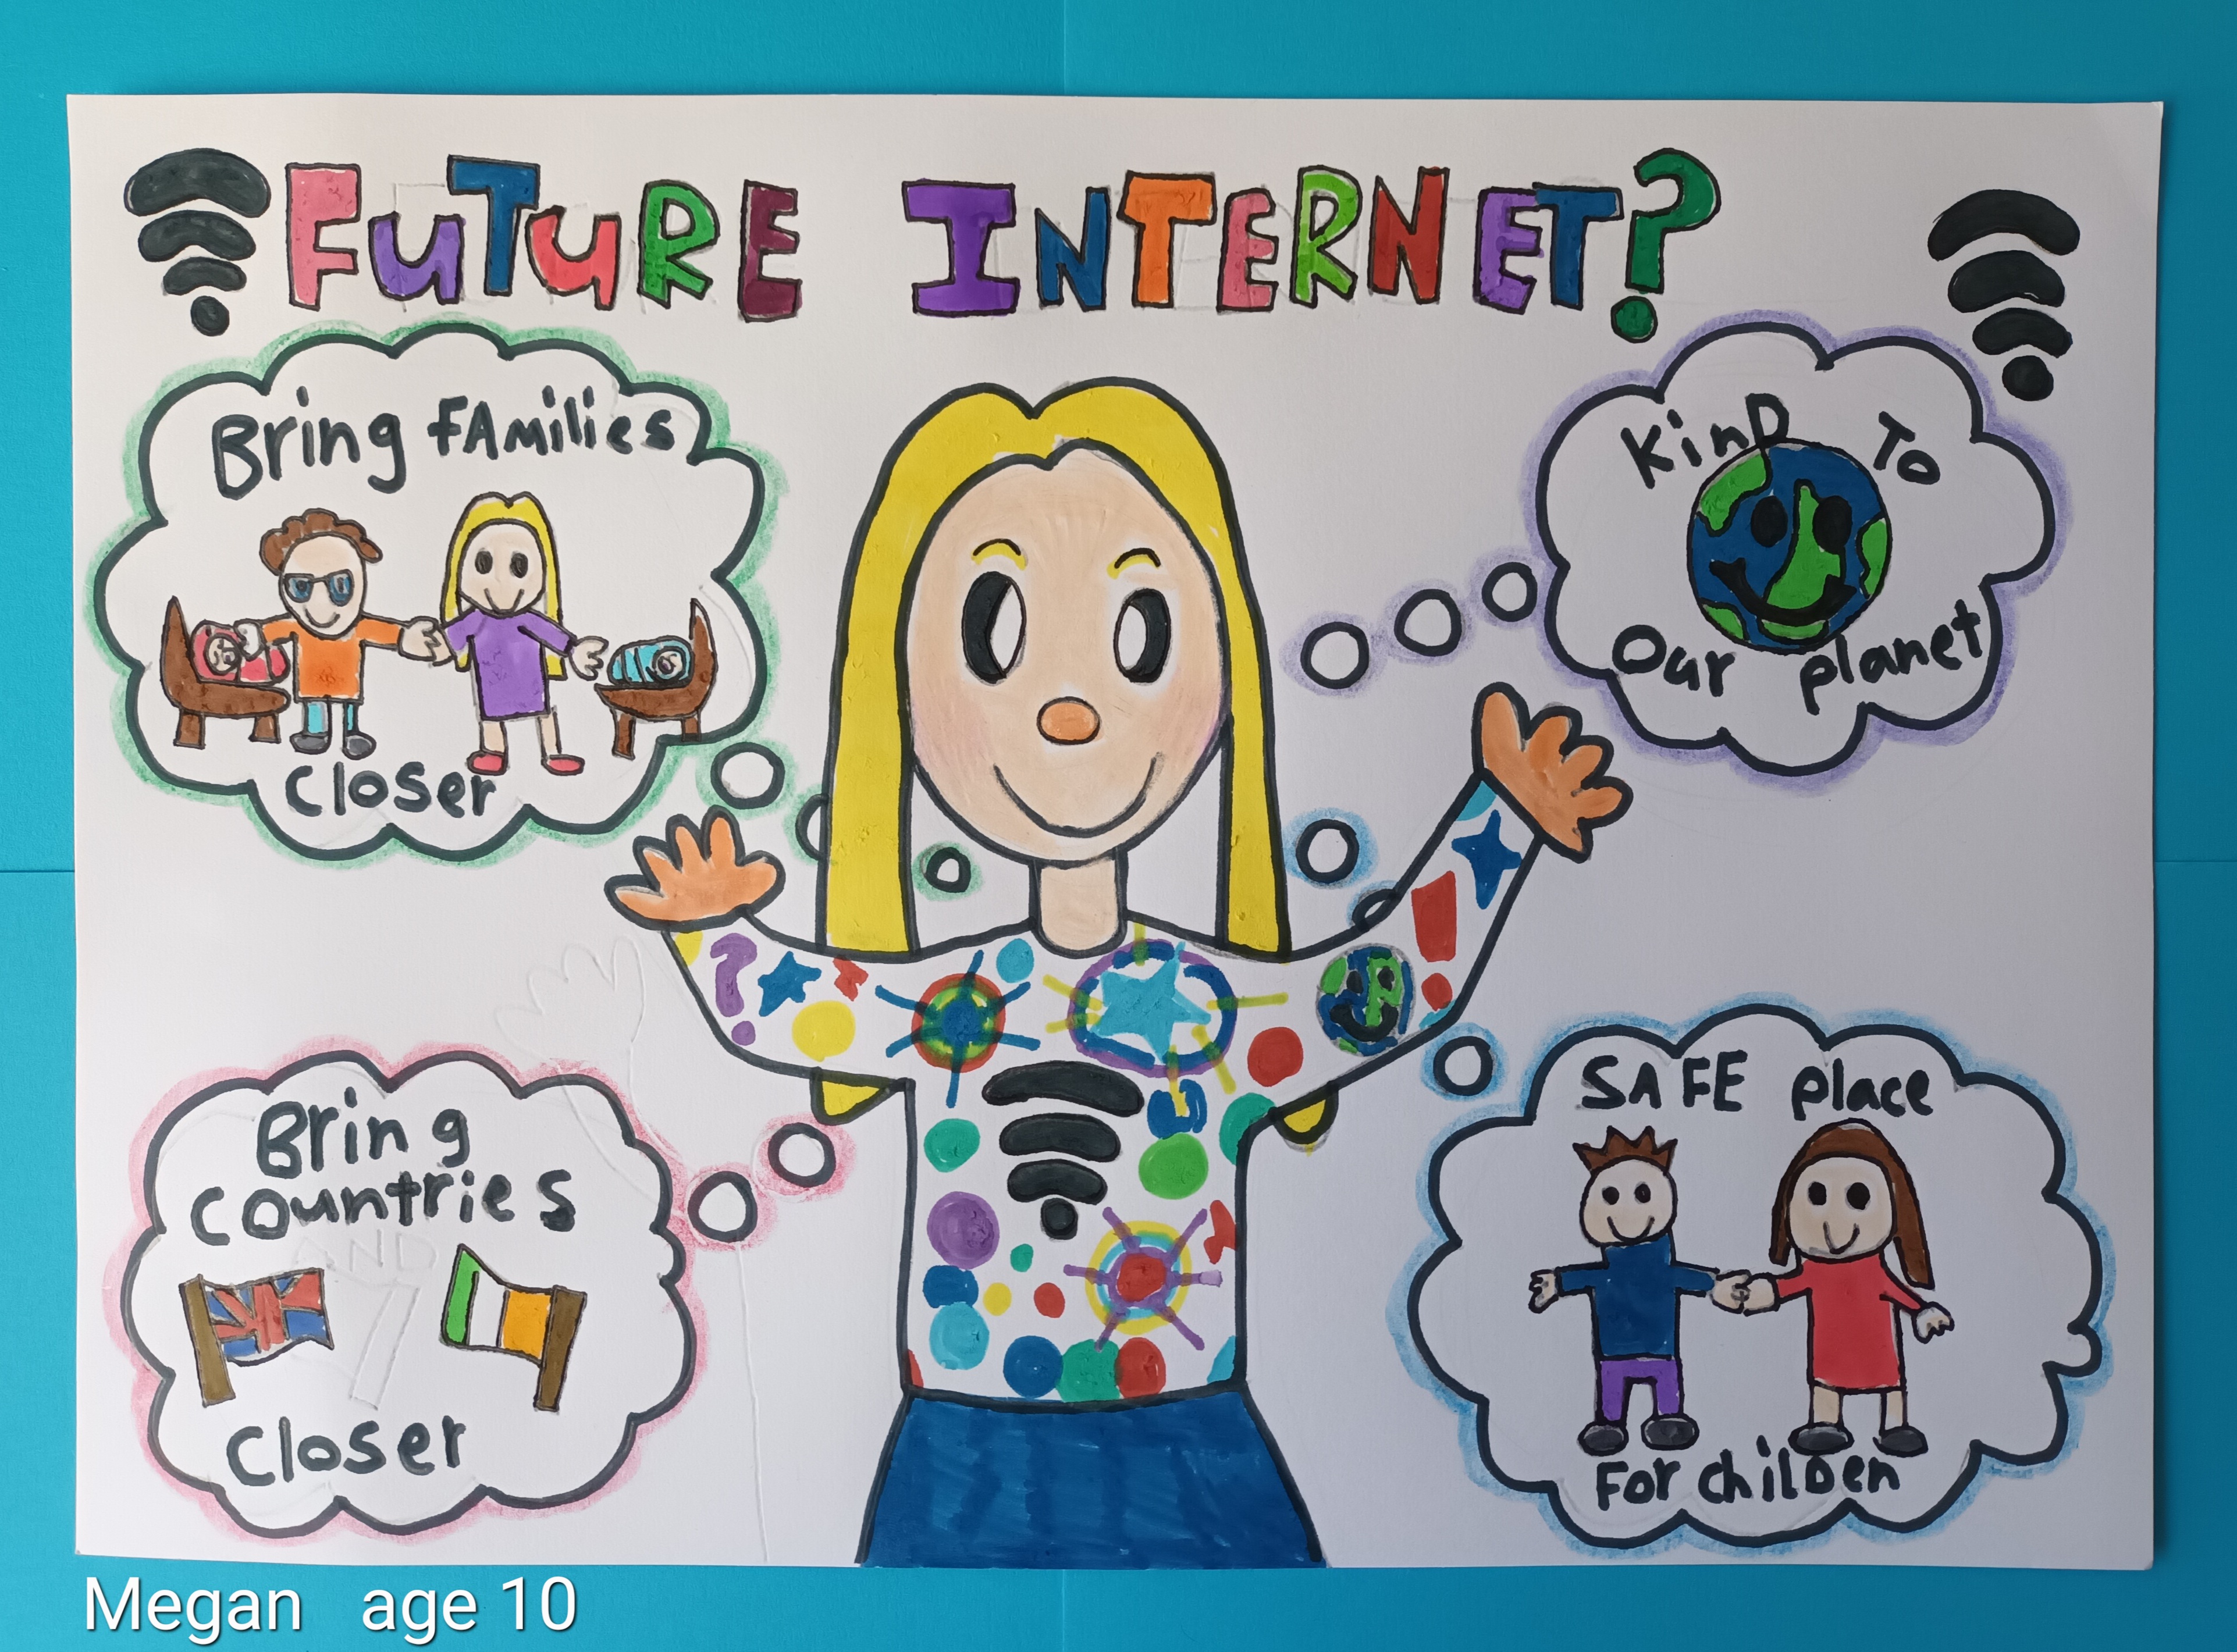 FuTuRE INTERNET?
Bring FAMilies
closer
KinD To
Our planet
Bring
countries
AND
closer
SAFE place
For chilDen
Megan age 10